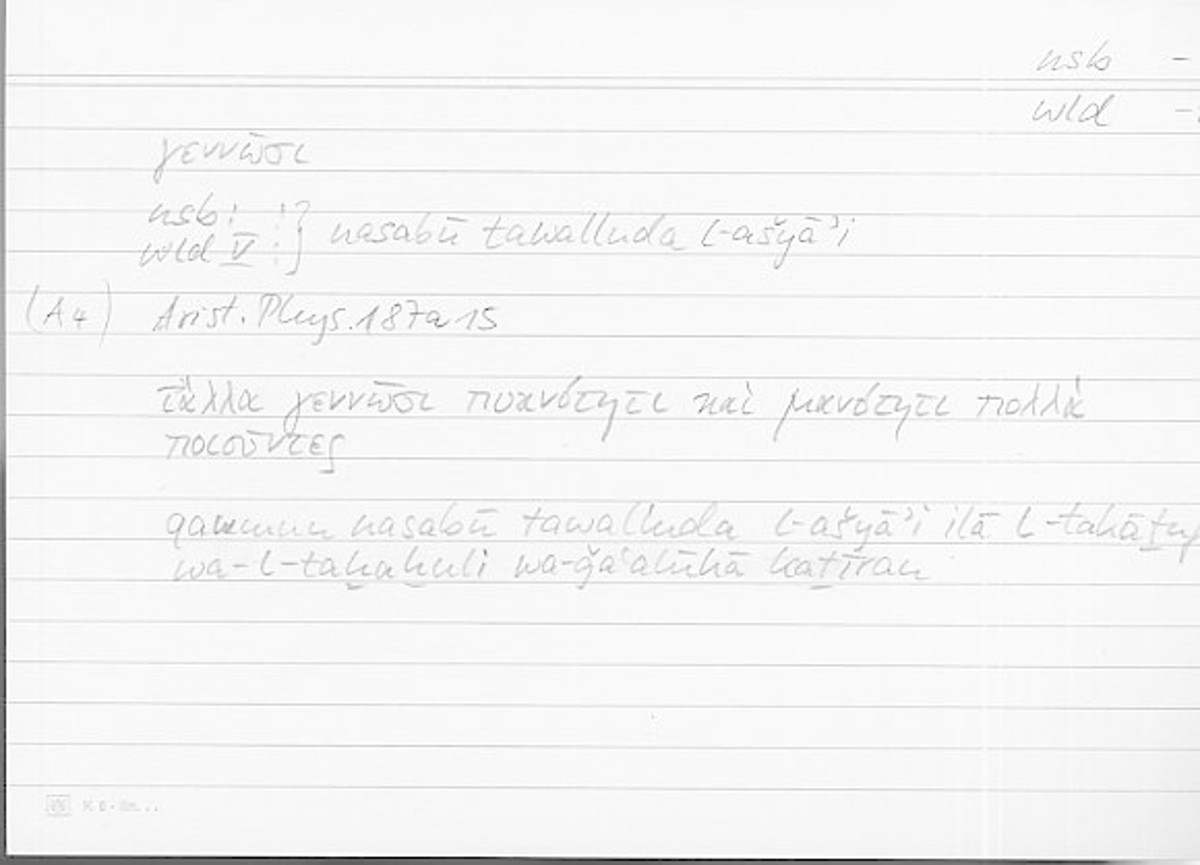 nsb –
wld –
γεννῶσι
nsb:
wld V } nasabū tawalluda l-ašyāʾi
(A4) Arist. Phys. 187a15
τἆλλα γεννῶσι πυκνότητι καὶ μανότητι πολλὰ
ποιοῦντες
qawmun nasabū tawalluda l-ašyāʾi ilā l-takāṯu
wa-l-taḫalḫuli wa-ǧaʿalūhā kaṯīran